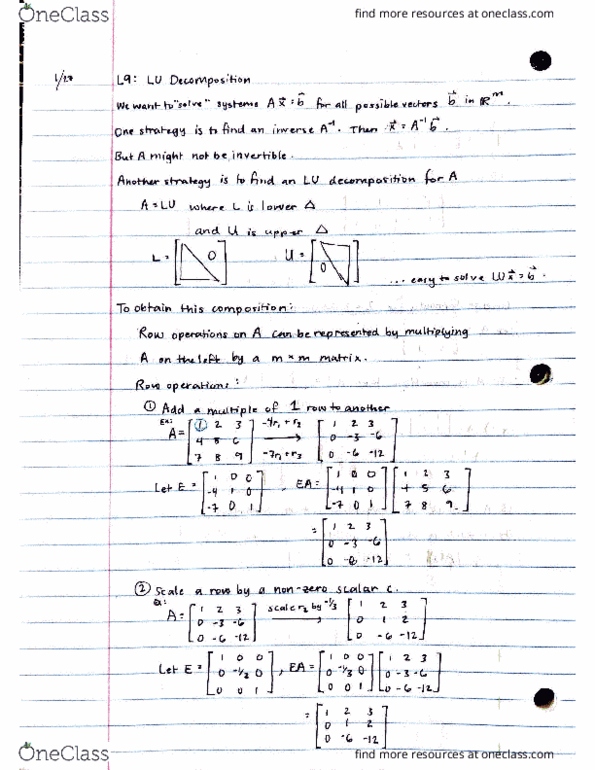 OneClass
find more resources at oneclass.com
1/27
L9: LU Decomposition
We want to "solve" systems Ax⃗ = b⃗ for all possible vectors b⃗ in ℝᵐ.
One strategy is to find an inverse A⁻¹. Then x⃗ = A⁻¹b⃗.
But A might not be invertible.
Another strategy is to find an LU decomposition for A
A = LU where L is lower △
and U is upper △
L = [ 0 ] U = [ 0 ]
... easy to solve LUx⃗ = b⃗.
To obtain this composition:
Row operations on A can be represented by multiplying
A on the left by a m × m matrix.
Row operations:
① Add a multiple of 1 row to another
Ex:
A = [1 2 3; 4 5 6; 7 8 9] -4r₁+r₂ → -7r₁+r₃ [1 2 3; 0 -3 -6; 0 -6 -12]
Let E = [1 0 0; -4 1 0; -7 0 1], EA = [1 0 0; -4 1 0; -7 0 1] [1 2 3; 4 5 6; 7 8 9]
= [1 2 3; 0 -3 -6; 0 -6 -12]
② Scale a row by a non-zero scalar c.
Ex:
A = [1 2 3; 0 -3 -6; 0 -6 -12] scale r₂ by -1/3 → [1 2 3; 0 1 2; 0 -6 -12]
Let E = [1 0 0; 0 -1/3 0; 0 0 1], EA = [1 0 0; 0 -1/3 0; 0 0 1] [1 2 3; 0 -3 -6; 0 -6 -12]
= [1 2 3; 0 1 2; 0 -6 -12]
OneClass
find more resources at oneclass.com